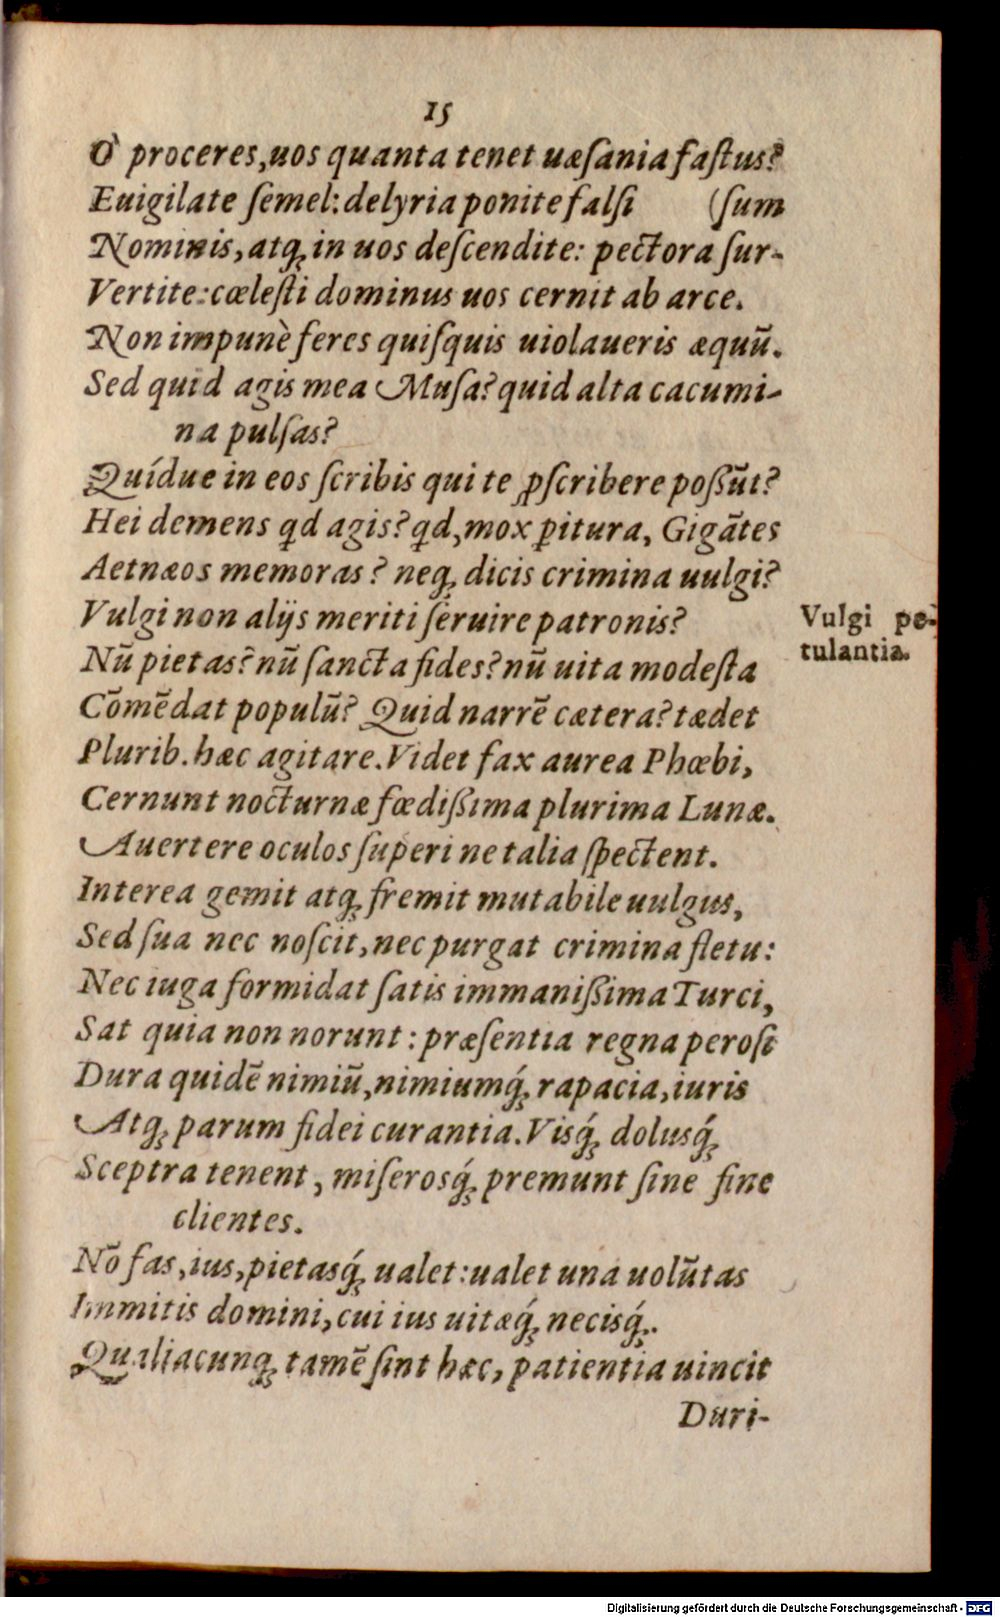 15
O' proceres, uos quanta tenet uæsania fastus?
Euigilate semel: delyria ponite falsi (sum
Nominis, atq́; in uos descendite: pectora sur-
Vertite: cœlesti dominus uos cernit ab arce.
Non impunè feres quisquis uiolaueris æquũ.
Sed quid agis mea Musa? quid alta cacumi-
na pulsas?
Quídue in eos scribis qui te ꝓscribere possũt?
Hei demens qd agis? qd, mox ꝑitura, Gigãtes
Aetnæos memoras? neq; dicis crimina uulgi?
Vulgi non alijs meriti seruire patronis?
Vulgi pe-
tulantia.
Nũ pietas? nũ sancta fides? nũ uita modesta
Cõmẽdat populũ? Quid narrẽ cætera? tædet
Plurib. hæc agitare. Videt fax aurea Phœbi,
Cernunt nocturnæ fœdissima plurima Lunæ.
Auertere oculos superi ne talia spectent.
Interea gemit atq; fremit mutabile uulgus,
Sed sua nec noscit, nec purgat crimina fletu:
Nec iuga formidat satis immanissima Turci,
Sat quia non norunt: præsentia regna perosi
Dura quidẽ nimiũ, nimiumq́; rapacia, iuris
Atq; parum fidei curantia. Visq́; dolusq́;
Sceptra tenent, miserosq́; premunt sine fine
clientes.
Nõ fas, ius, pietasq́; ualet: ualet una uolũtas
Immitis domini, cui ius uitæq́; necisq́;.
Qualiacunq; tamẽ sint hæc, patientia uincit
Duri-
Digitalisierung gefördert durch die Deutsche Forschungsgemeinschaft - DFG